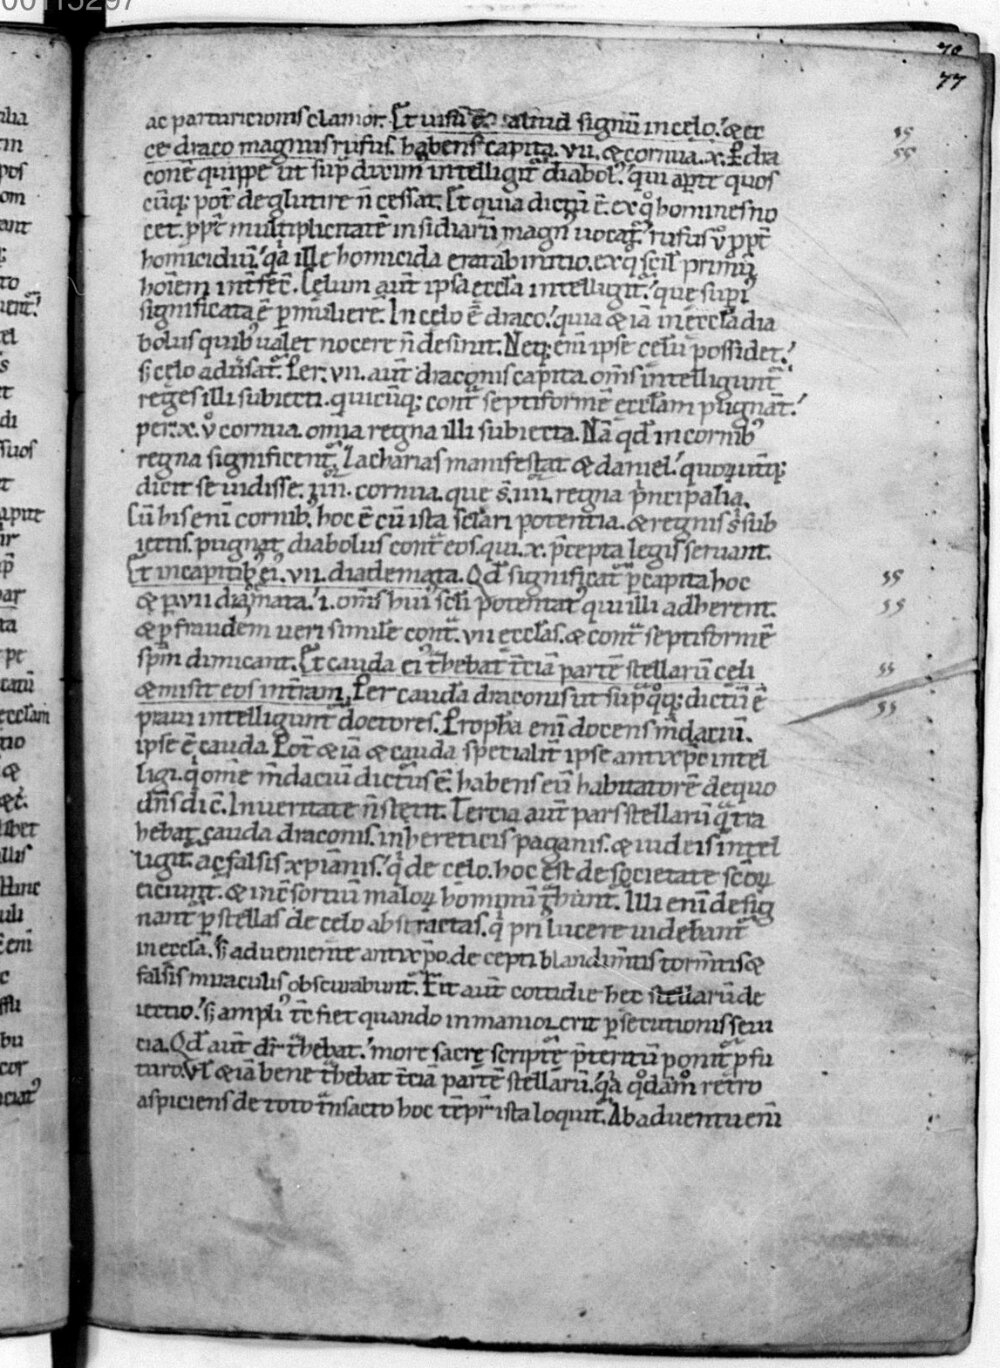 00115297
70
77
ac parturicionis clamor. Et uisū ē aliud signū in celo. & ec
ce draco magnus rufus. habens capita. vii. & cornua. x. P̱ dra
conē quippe ut sup̄ diximꝰ intelligit᷑ diabolꝰ. qui aperte quos
cūq; pot᷑ deglutire n̄ cessat. Et quia dictū ē. ex qͦ homines no
cet. ꝓpt᷑ multiplicitatē insidiarū magnꝰ uocat᷑. rufus ꝟ ꝓpt᷑
homicidiū. qͣ ille homicida erat ab initio. ex qͦ scil̄ primū
hoīem int᷑fec᷑. Celum aut̄ ipsa eccl̄a intelligit᷑. que supiꝰ
significata ē ꝑ mulierē. In celo ē draco. quia & iā in eccl̄a dia
bolus quibꝰ ualet nocere n̄ desinit. Neq; eīm ipse celū possidet.
s; celo aduersat᷑. Per. vii. aut̄ draconis capita. om̄s intelligunt᷑
reges illi subiecti. quicūq; cont᷑ septiformē eccl̄am pugnāt.
per. x. ꝟ cornua. omnia regna illi subiecta. Nā qd̄ in cornibꝰ
regna significent᷑. Zacharias manifestat & daniel. quoꝝ ut᷑q;
dicit se uidisse. iiii. cornua. que s̄. iiii. regna p̄ncipalia.
Cū his enī cornibꝰ. hoc ē cū ista sclari potentia. & regnis s' sub
iectis. pugnat diabolus cont᷑ eos. qui. x. p̄cepta legis seruant.
Et in capitibꝰ ei. vii. diademata. Qd̄ significat᷑ ꝑ capita hoc
& ꝑ. vii diamata. .i. om̄s huiꝰ scl̄i potentat᷑ qui illi adherent.
& ꝑ fraudem ueri simile cont᷑. vii eccl̄as. & cont᷑ septiformē
spm̄ dimicant. Et cauda eiꝰ t᷑hebat t᷑ciā partē stellarū celi
& misit eos in t᷑ram. Per cauda draconis ut sup̄ qͦq; dictū ē
praui intelligunt᷑ doctores. Propha enī docens m̄daciū.
ipse ē cauda. Pot᷑ & iā & cauda specialit᷑ ipse antix̄pc intel
ligi. qͥ om̄e m̄daciū dictus ē. habens eū habitatorē de quo
dn̄s dic̄. In ueritate n̄ stetit. Tercia aut̄ pars stellarū qͣ tra
hebat cauda draconis. in hereticis paganis. & iudeis intel
ligit᷑. ac falsis xp̄ianis. qͥ de celo. hoc est de societate sc̄oꝝ
eiciunt᷑. & in c̄sortiū maloꝝ hominū t᷑hunt᷑. Illi enī desig
nant᷑ ꝑ stellas de celo abstractas. qͥ priꝰ lucere uidebant᷑
in eccl̄a. s; adueniente antix̄po. decepti blandim̄tis torm̄tis &
falsis miraculis obscurabunt᷑. Fit aut̄ cottidie hec stellarū de
iectio. s; ampliꝰ t̄c fiet quando in maniori erit ꝑsecutionis seui
cia. Qd̄ aut̄ dr̄ t᷑hebat. more sacrę scriptę p̄teritū ponit᷑ ꝓ fu
turo. Vl̄ & iā bene t᷑hebat t᷑ciā partē stellarū. qͣ qͦdam̄ retro
aspiciens de toto t᷑nsacto hoc tēpr̄ ista loquit᷑. Ab aduentu enī